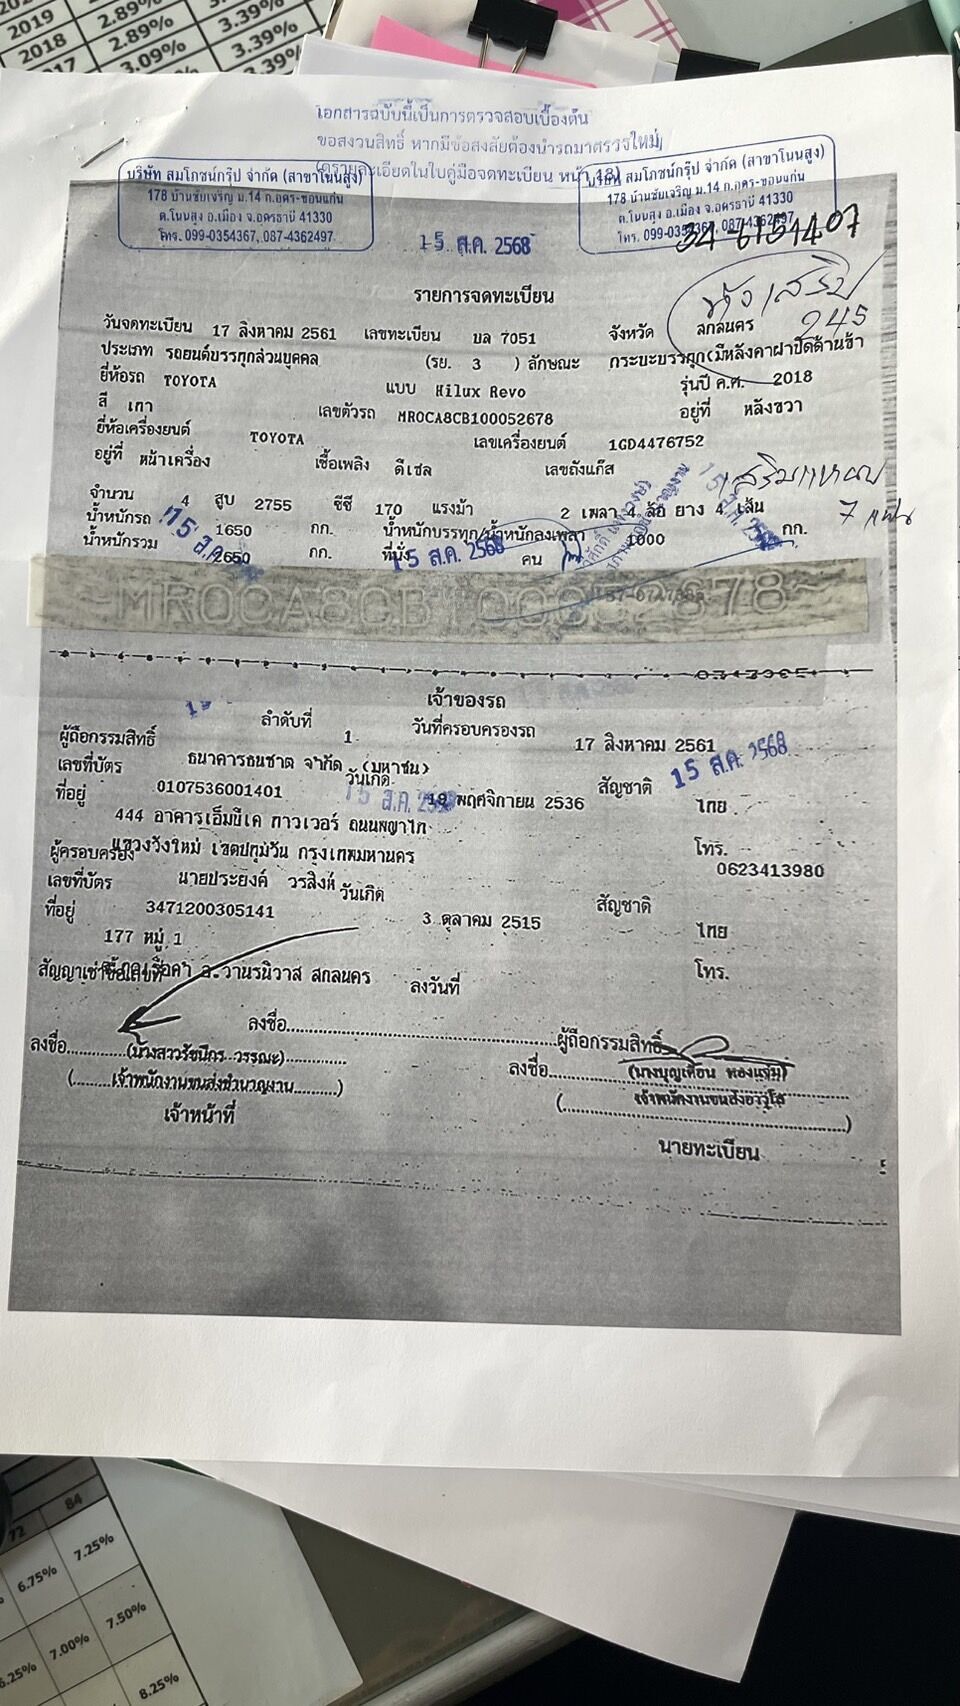 2019 2.89%
2018 2.89% 3.39%
3.09% 3.39%
3.39%
เอกสารฉบับนี้เป็นการตรวจสอบเบื้องต้น
ขอสงวนสิทธิ์ หากมีข้อสงสัยต้องนำรถมาตรวจใหม่
(ดูรายละเอียดในใบคู่มือจดทะเบียน หน้า 18)
บริษัท สมโภชน์กรุ๊ป จำกัด (สาขาโนนสูง)
178 บ้านชัยเจริญ ม.14 ถ.อุดร-ขอนแก่น
ต.โนนสูง อ.เมือง จ.อุดรธานี 41330
โทร. 099-0354367, 087-4362497
บริษัท สมโภชน์กรุ๊ป จำกัด (สาขาโนนสูง)
178 บ้านชัยเจริญ ม.14 ถ.อุดร-ขอนแก่น
ต.โนนสูง อ.เมือง จ.อุดรธานี 41330
โทร. 099-0354367, 087-4362497
15 ส.ค. 2568
รายการจดทะเบียน
245
วันจดทะเบียน 17 สิงหาคม 2561 เลขทะเบียน บล 7051 จังหวัด สกลนคร
ประเภท รถยนต์บรรทุกส่วนบุคคล (รย. 3 ) ลักษณะ กระบะบรรทุก(มีหลังคาฝาปิดด้านข้า
ยี่ห้อรถ TOYOTA แบบ Hilux Revo รุ่นปี ค.ศ. 2018
สี เทา เลขตัวรถ MROCA8CB100052678 อยู่ที่ หลังขวา
ยี่ห้อเครื่องยนต์ TOYOTA เลขเครื่องยนต์ 1GD4476752
อยู่ที่ หน้าเครื่อง เชื้อเพลิง ดีเซล เลขถังแก๊ส
จำนวน 4 สูบ 2755 ซีซี 170 แรงม้า 2 เพลา 4 ล้อ ยาง 4 เส้น
น้ำหนักรถ 1650 กก. น้ำหนักบรรทุก/น้ำหนักลงเพลา 1000 กก.
น้ำหนักรวม 2650 กก. ที่นั่ง คน
15 ส.ค. 2568
MROCA8CB100052678
เจ้าของรถ
ลำดับที่ 1. วันที่ครอบครองรถ 17 สิงหาคม 2561
ผู้ถือกรรมสิทธิ์ ธนาคารธนชาต จำกัด (มหาชน)
15 ส.ค. 2568
เลขที่บัตร 0107536001401 วันเกิด 19 พฤศจิกายน 2536 สัญชาติ ไทย
ที่อยู่ 444 อาคารเอ็มบีเค ทาวเวอร์ ถนนพญาไท
แขวงวังใหม่ เขตปทุมวัน กรุงเทพมหานคร โทร. 0623413980
ผู้ครอบครอง นายประยงค์ วรสิงห์
เลขที่บัตร 3471200305141 วันเกิด 3 ตุลาคม 2515 สัญชาติ ไทย
ที่อยู่ 177 หมู่ 1
อ.วานรนิวาส สกลนคร โทร.
สัญญาเช่าซื้อเลขที่ ลงวันที่
ลงชื่อ ผู้ถือกรรมสิทธิ์
ลงชื่อ ลงชื่อ
เจ้าพนักงานขนส่งชำนาญงาน เจ้าพนักงานขนส่งอาวุโส
เจ้าหน้าที่ นายทะเบียน
72 84
6.75% 7.25%
6.25% 7.00% 7.50%
8.25%